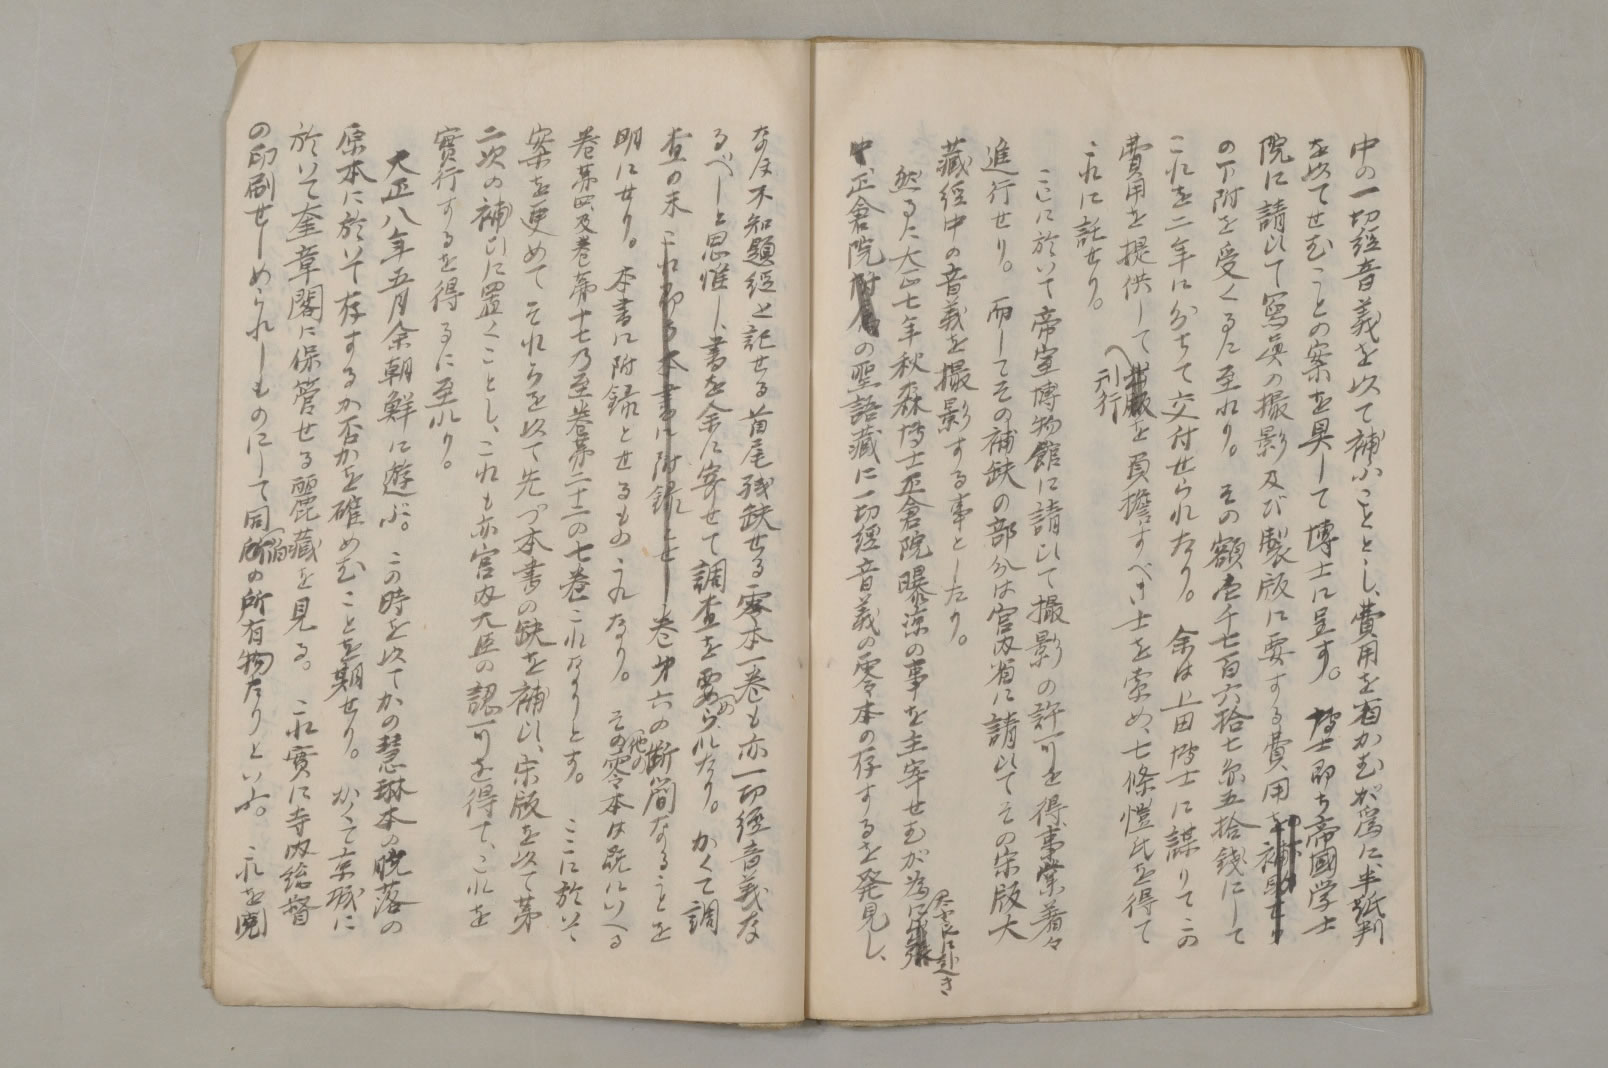 中の一切経音義を以て補ふこととし、費用を省かむが為に、半紙判
を以てせむことの案を具して博士に呈す。博士即ち帝國学士
院に請ひて寫眞の撮影及び製版に要する費用の
の下附を受くるに至れり。その額壱千七百六拾七円五拾錢にして
これを二年に分ちて交付せられたり。余は上田博士に謀りてこの
費用を提供して刊行を負擔すべき士を索め、七條愷氏を得て
これに託せり。
ここに於いて帝室博物館に請ひて撮影の許可を得、事業着々
進行せり。而してその補缺の部分は宮内省に請ひてその宋版大
藏経中の音義を撮影する事としたり。
然るに大正七年秋森博士正倉院曝涼の事を主宰せむが為に奈良に赴き
正倉院の聖語藏に一切經音義の零本の存するを発見し、
なほ不知題經と記せる首尾殘缺せる零本一巻も亦一切經音義な
るべしと思惟し、書を余に寄せて調査を要められたり。かくて調
査の末これ巻第六の断簡なることを
明にせり。本書に附録とせるものこれなり。その他の零本は既にいへる
巻第四及巻第十七乃至巻第二十二の七巻これなりとす。ここに於いて
案を更めてそれらを以て先づ本書の缺を補ひ、宋版を以て第
二次の補ひに置くこととし、これも亦宮内大臣の認可を得て、これを
實行するを得るに至れり。
大正八年五月余朝鮮に遊ぶ。この時を以てかの慧琳本の脱落の
原本に於いて存するか否かを確めむことを期せり。かくて京城に
於いて奎章閣に保管せる麗藏を見る。これ實に寺内総督
の印刷せしめられしものにして同所の所有物なりといふ。これを閲